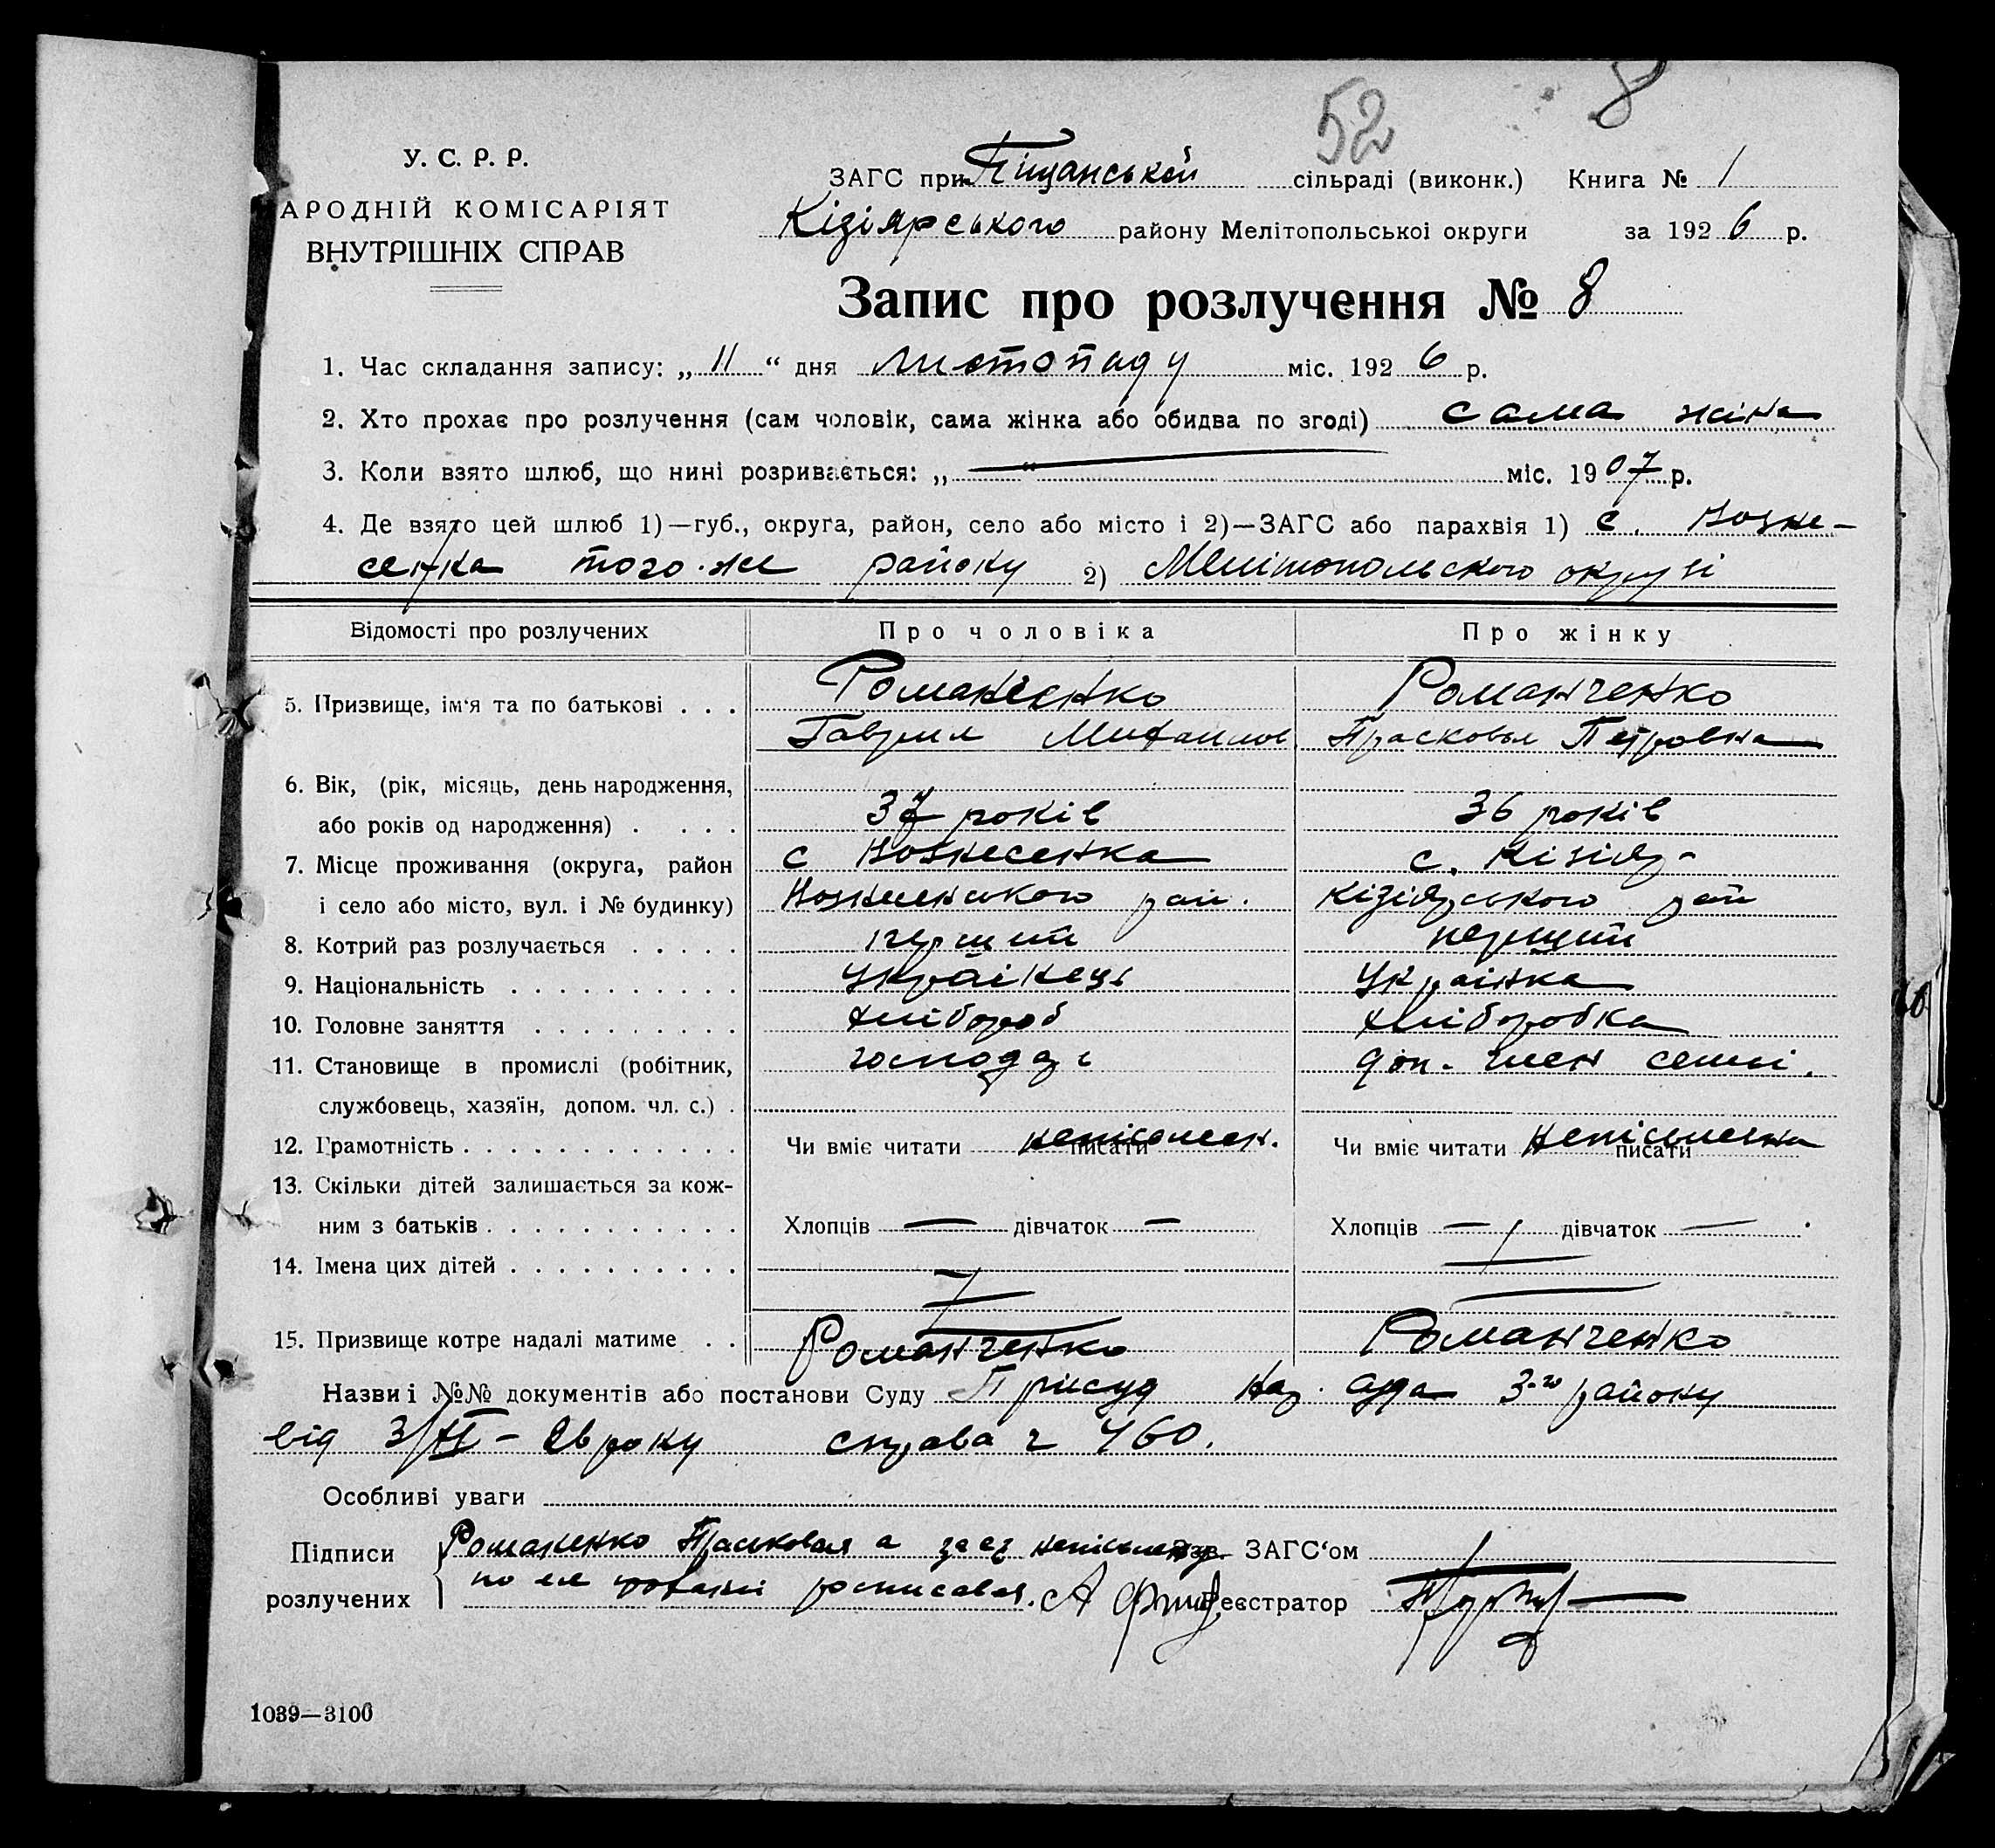 52 8
У. С. Р. Р.
АРОДНІЙ КОМІСАРІЯТ
ВНУТРІШНІХ СПРАВ
ЗАГС при Піщанській сільраді (виконк.) Книга № 1
Кізіярського району Мелітопольської округи за 1926 р.
Запис про розлучення № 8
1. Час складання запису: „11“ дня листопаду міс. 1926 р.
2. Хто прохає про розлучення (сам чоловік, сама жінка або обидва по згоді) сама жінка
3. Коли взято шлюб, що нині розривається: „—“ міс. 1907 р.
4. Де взято цей шлюб 1)—губ., округа, район, село або місто і 2)—ЗАГС або парахвія 1) с. Возне-
сенка того-же району 2) Мелітопольского округі
Відомості про розлучених Про чоловіка Про жінку
5. Призвище, ім'я та по батькові . . . Романенко Романченко
Гаврил Михаилов. Прасковья Петровна
6. Вік, (рік, місяць, день народження,
або років од народження) . . . . 37 років 36 років
7. Місце проживання (округа, район с Вознесенка с. Кізіяр-
і село або місто, вул. і № будинку) Вознесенського рай. Кізіярського рай
8. Котрий раз розлучається . . . . . перший перший
9. Національність . . . . . . . . . . Українець Українка
10. Головне заняття . . . . . . . . . хлібороб хліборобка
11. Становище в промислі (робітник, господарь доп. член семьі.
службовець, хазяїн, допом. чл. с.) .
12. Грамотність . . . . . . . . . . . . . Чи вміє читати непісьмен. писати Чи вміє читати непісьменна писати
13. Скільки дітей залишається за кож-
ним з батьків . . . . . . . . . . . . Хлопців — дівчаток — Хлопців — дівчаток —
14. Імена цих дітей . . . . . . . . . . — —
15. Призвище котре надалі матиме . . Романченко Романченко
Назви і №№ документів або постанови Суду Присуд Нар. суда 3-го району
від 3/XI - 26 року справа ч 460.
Особливі уваги
Підписи Романенко Прасковья а за ег непісьмену зав. ЗАГС'ом
розлучених по ея росписався. А Реєстратор
1039—3100